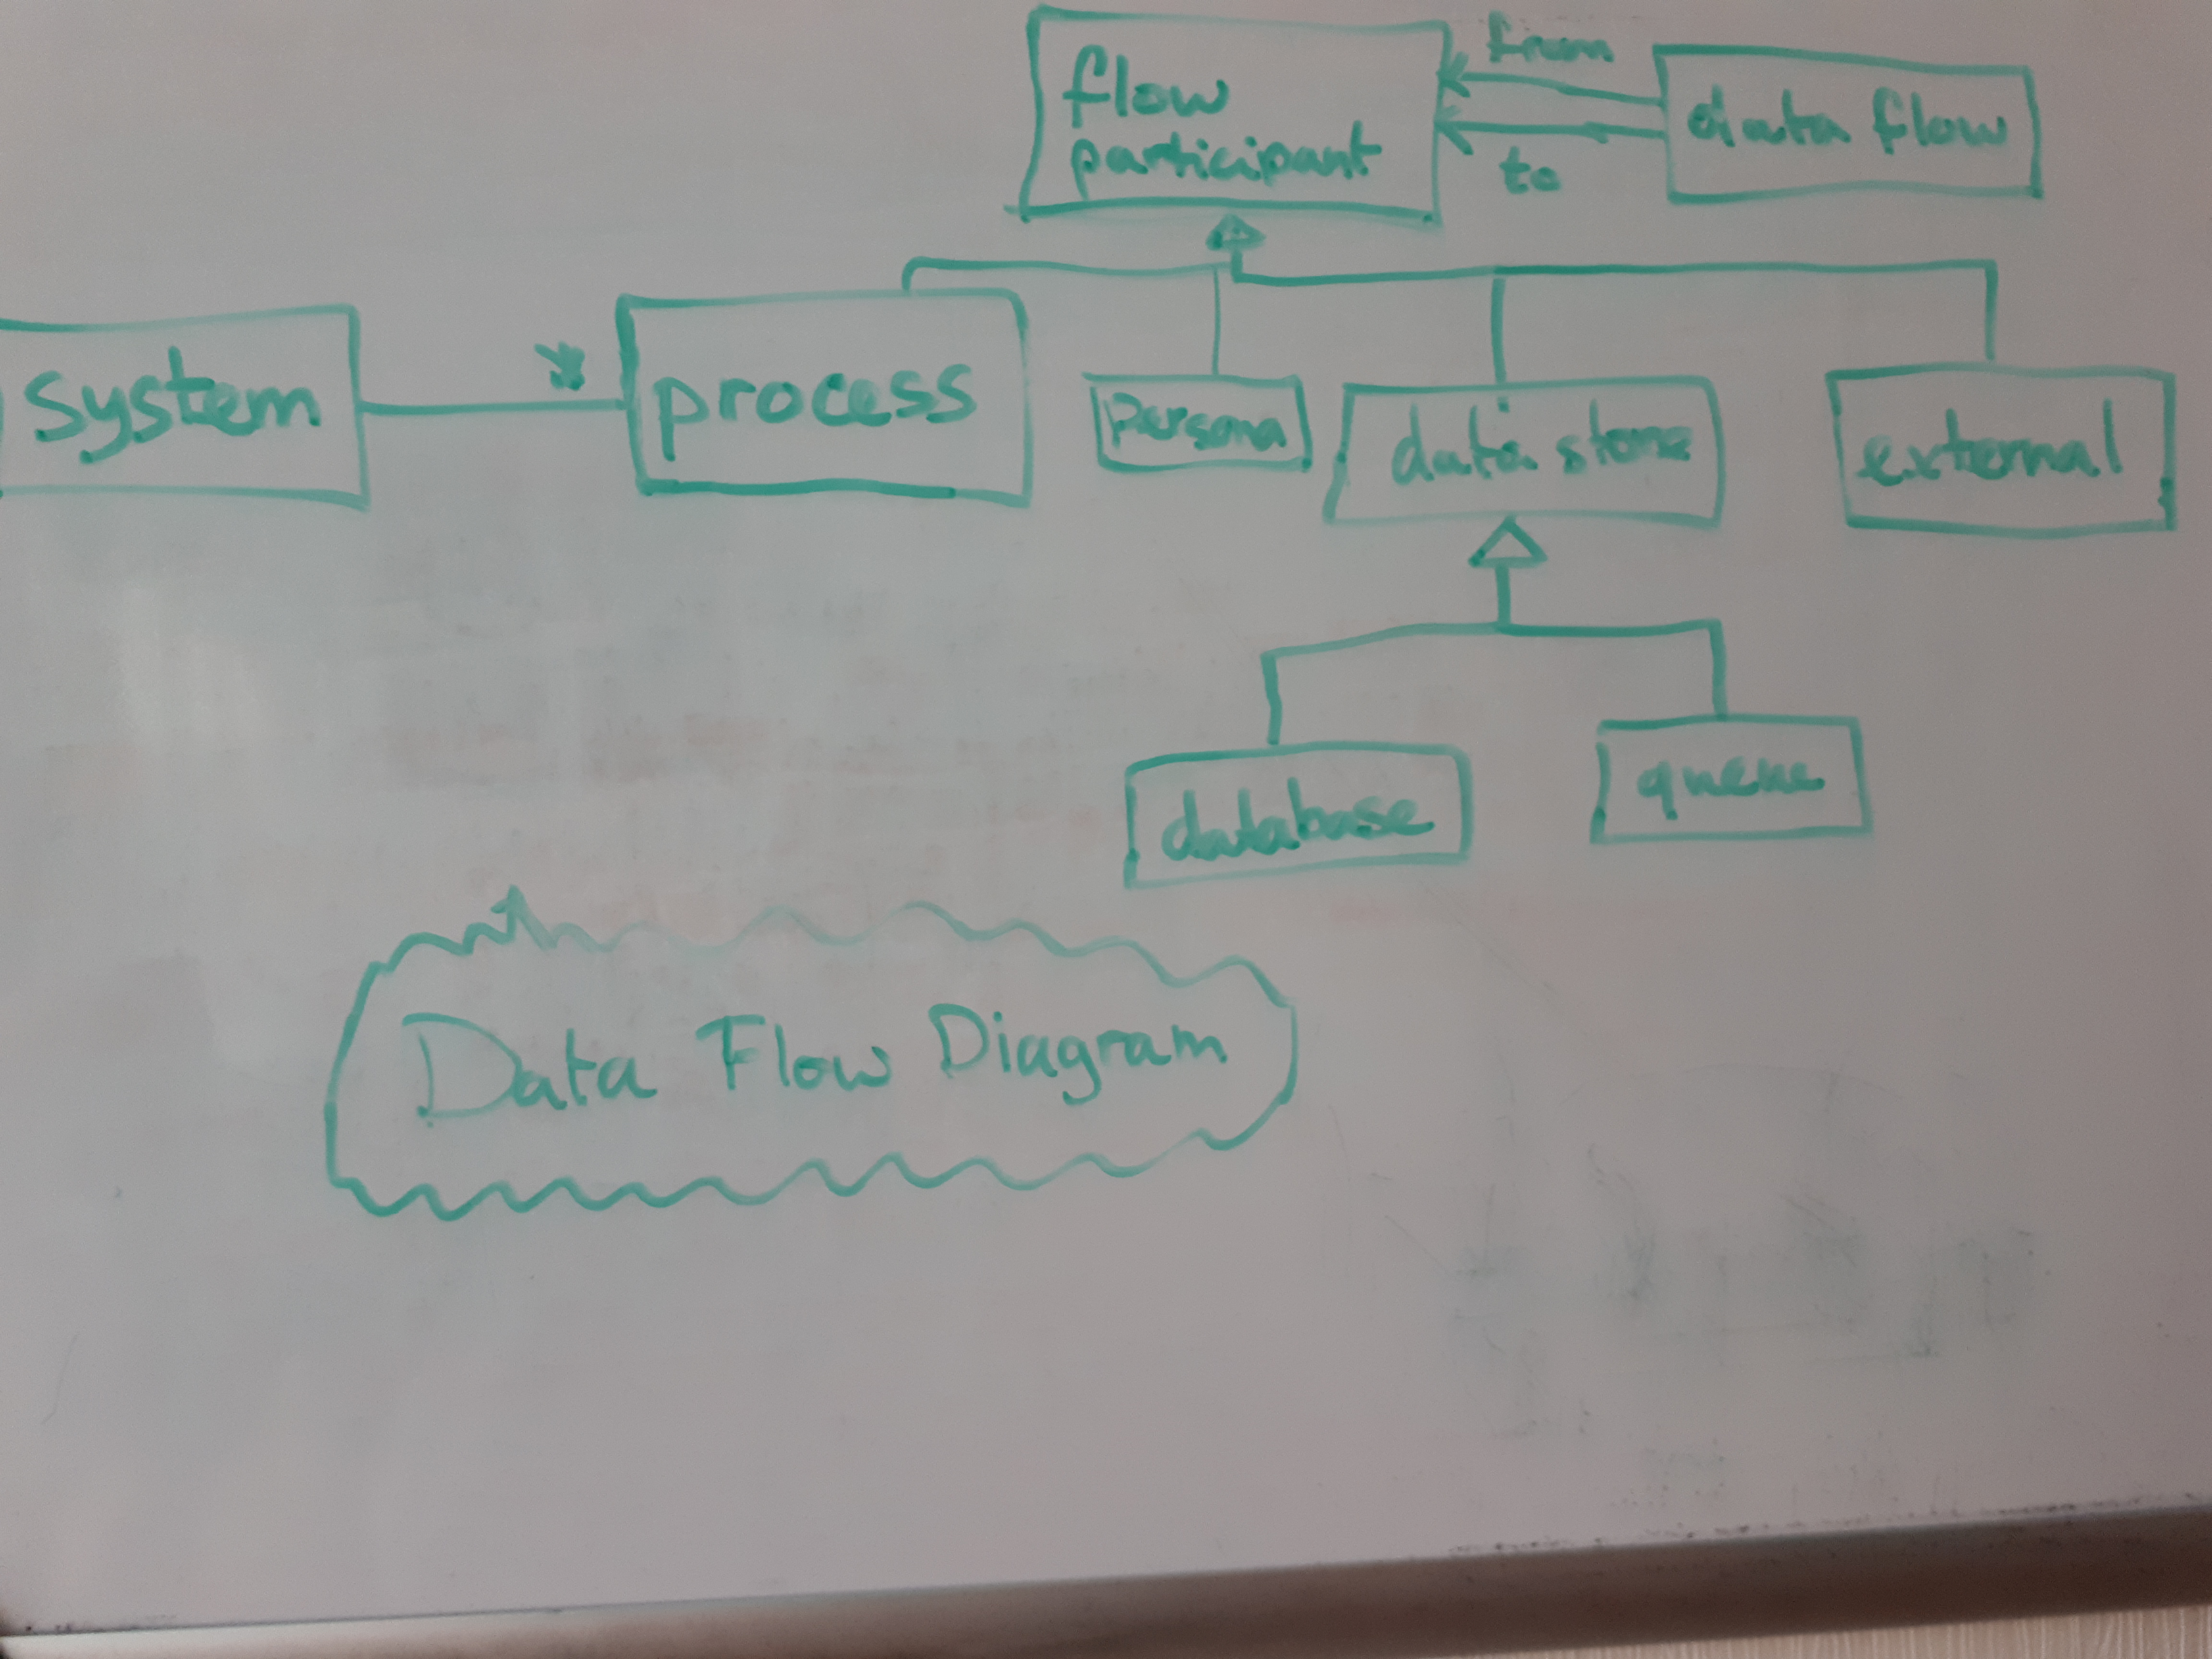 flow
participant
from
to
data flow
system
*
process
persona
data store
external
database
queue
Data Flow Diagram